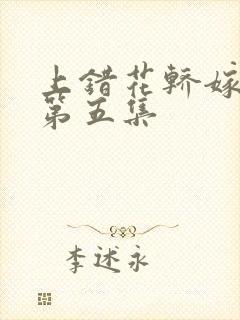 上错花轿嫁
第五集
李述永